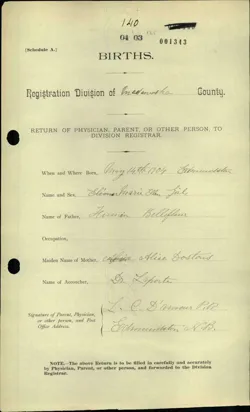 140
04 03 001343
(Schedule A.)
BIRTHS.
Registration Division of Madawaska County.
RETURN OF PHYSICIAN, PARENT, OR OTHER PERSON, TO
DIVISION REGISTRAR.
When and Where Born, Aug 14th 1904 Edmundston
Name and Sex, Marie Girl
Name of Father, Bellefleur
Occupation,
Maiden Name of Mother, Alice
Name of Accoucher, Dr. Laporte
Signature of Parent, Physician,
or other person, and Post
Office Address.
L. C. D'amour
Edmundston N.B.
NOTE.—The above Return is to be filled in carefully and accurately
by Physician, Parent, or other person, and forwarded to the Division
Registrar.